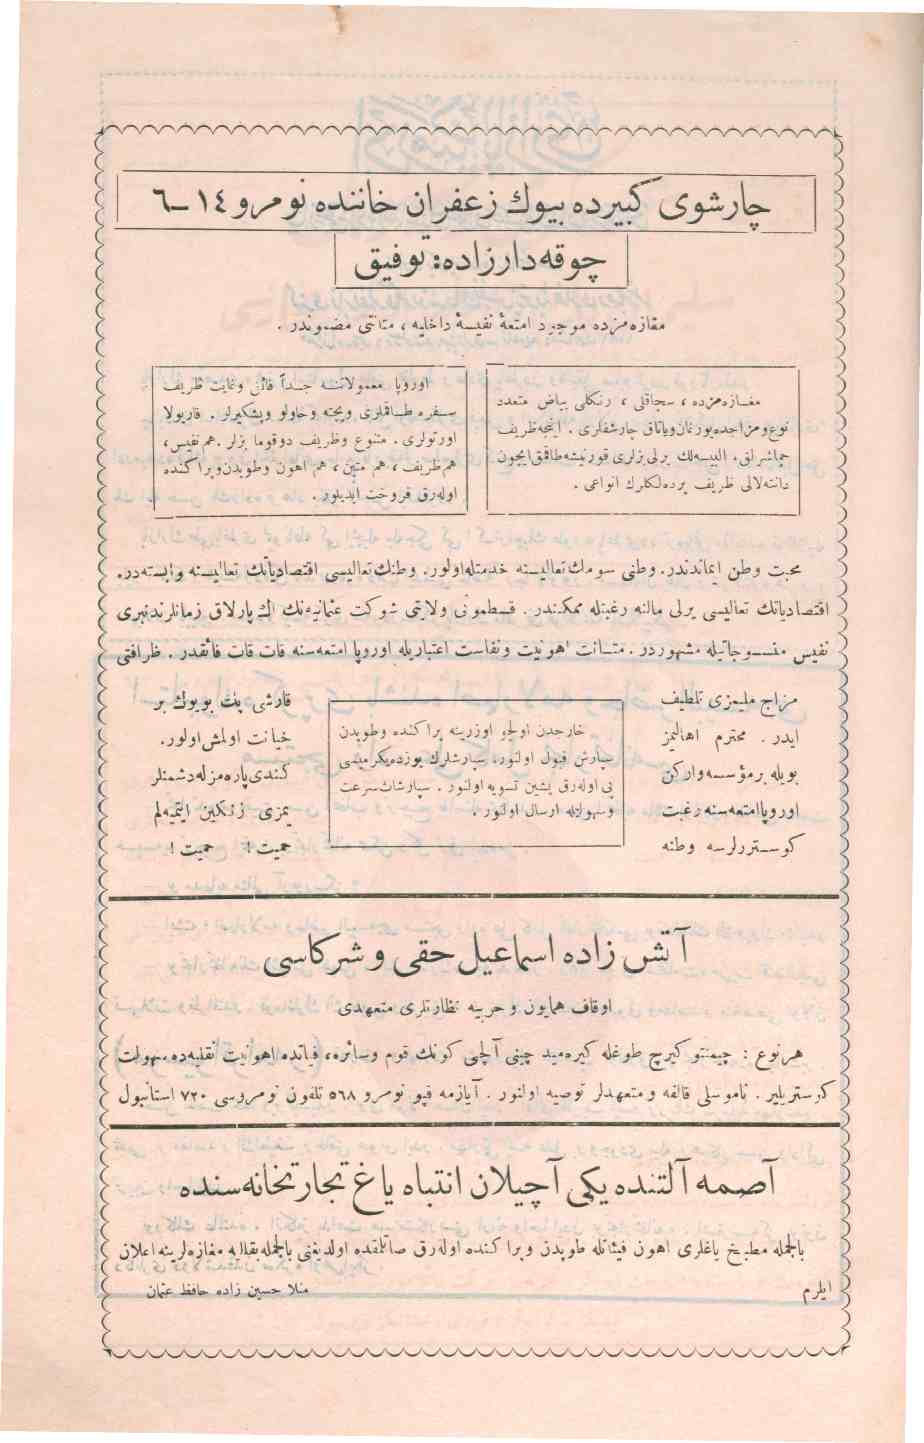 چارشوی كبیرده بیوك زعفران خاننده نومرو ١٤—٦
چوقه‌دارزاده: توفیق
مغازه‌مزده موجود امتعهٔ نفیسهٔ داخلیه، متانتی مضموندر.
مغازه‌مزده، سجاقلی، رنكلی بیاض متعدد
نوع ومزاجده یورغان ویاتاق چارشفلری. اینجه ظریف
چماشرلق. البیسه‌لك یرلی بزلری قورنیشه طاقمق ایچون
دانته‌لالی ظریف پرده‌لكلرك انواعی.
اوروپا معمولاتنه جداً فائق وغایت ظریف
سفره طاقملری وپچته وخاولو وپشكیرلر. قاریولا
اورتولری. متنوع وظریف دوقوما بزلر. هم نفیس،
هم ظریف، هم متین، هم اهون وطوپدن وپراكنده
اوله‌رق فروخت ایدیلور.
محبت وطن ایماندندر. وطنی سومك تعالیسنه خدمتله اولور. وطنك تعالیسی اقتصادیاتك تعالیسنه وابسته‌در.
اقتصادیاتك تعالیسی یرلی مالنه رغبتله ممكندر. قسطمونی ولایتی شوكت عثمانیه‌نك اك پارلاق زمانلرندنبری
نفیس منسوجاتیله مشهوردر. متانت اهونیت ونفاست اعتباریله اوروپا امتعه‌سنه قات قات فائقدر. ظرافتی
مزاج ملیمزی تلطیف
ایدر. محترم اهالیمز
بویله بر مؤسسه واركن
اوروپا امتعه‌سنه رغبت
كوستررلرسه وطنه
خارجدن اولجو اوزرینه پراكنده وطوپدن
سپارش قبول اولنور، سپارشلرك یوزده یكرمیسی
پی اوله‌رق پشین تسویه اولنور. سپارشات سرعت
وسهولتله ارسال اولنور.
قارشی پك بویوك بر
خیانت اولمش اولور.
كندی پاره‌مزله دشمنلر
یمزی زنكین ایتمیه‌لم
حمیت! حمیت!
آتش زاده اسماعیل حقی و شركاسی
اوقاف همایون و حربیه نظارتلری متعهدی
هرنوع: چیمنتو كیرج طوغله كیره‌مید چینی آلچی كونك قوم وسائره، فیاتده اهوانیت نقلیه‌ده سهولت
كوستریلیر. ناموسلی قالفه ومتعهدلر توصیه اولنور. آیازمه قپو نومرو ٥٦٨ تلفون نومروسی ٧٢٠ استانبول
آصمه آلتنده یكی آچیلان انتباه یاغ تجارتخانه‌سنده
بالجمله مطبخ یاغلری اهون فیئاتله طوپدن وپراكنده اوله‌رق صاتلقده اولدیغنی بالجمله بقالیه مغازه‌لرینه اعلان
ایلرم
منلا حسین زاده حافظ عثمان